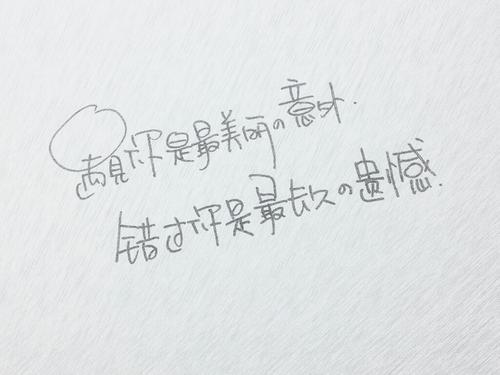 遇見你是最美丽の意外.
错过你是最长久の遗憾.